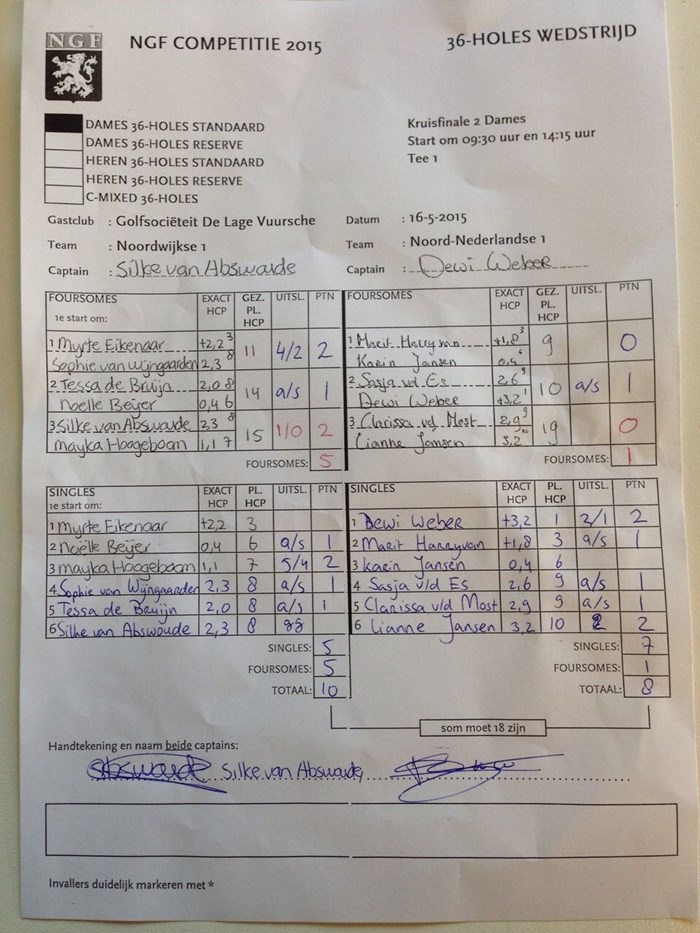 NGF
NGF COMPETITIE 2015
36-HOLES WEDSTRIJD
DAMES 36-HOLES STANDAARD
DAMES 36-HOLES RESERVE
HEREN 36-HOLES STANDAARD
HEREN 36-HOLES RESERVE
C-MIXED 36-HOLES
Kruisfinale 2 Dames
Start om 09:30 uur en 14:15 uur
Tee 1
Gastclub : Golfsociëteit De Lage Vuursche Datum : 16-5-2015
Team : Noordwijkse 1 Team : Noord-Nederlandse 1
Captain : Silke van Abswoude Captain : Dewi Weber
FOURSOMES EXACT HCP GEZ. PL. HCP UITSL. PTN FOURSOMES EXACT HCP GEZ. PL. HCP UITSL. PTN
1e start om:
1 Myrte Eikenaar +2,2 3 11 4/2 2 1 Marit +1,8 3 9 0
Sophie van Wijngaarden 2,3 8 Karin Jansen 0,4 6
2 Tessa de Bruijn 2,0 8 14 a/s 1 2 Sasja vd Es 2,6 9 10 a/s 1
Noelle Beijer 0,4 6 Dewi Weber +3,2 1
3 Silke van Abswoude 2,3 8 15 1/0 2 3 Clarissa vd Most 2,9 9 19 0
Mayka Hoogeboom 1,1 7 Lianne Jansen 3,2 10
FOURSOMES: 5 FOURSOMES: 1
SINGLES EXACT HCP PL. HCP UITSL. PTN SINGLES EXACT HCP PL. HCP UITSL. PTN
1e start om:
1 Myrte Eikenaar +2,2 3 1 Dewi Weber +3,2 1 2/1 2
2 Noëlle Beijer 0,4 6 a/s 1 2 Marit Harryvan +1,8 3 a/s 1
3 Mayka Hoogeboom 1,1 7 5/4 2 3 Karin Jansen 0,4 6
4 Sophie van Wijngaarden 2,3 8 a/s 1 4 Sasja v/d Es 2,6 9 a/s 1
5 Tessa de Bruijn 2,0 8 a/s 1 5 Clarissa v/d Most 2,9 9 a/s 1
6 Silke van Abswoude 2,3 8 6 Lianne Jansen 3,2 10 2 2
SINGLES: 5 SINGLES: 7
FOURSOMES: 5 FOURSOMES: 1
TOTAAL: 10 TOTAAL: 8
som moet 18 zijn
Handtekening en naam beide captains:
Abswoude Silke van Abswoude
Invallers duidelijk markeren met *